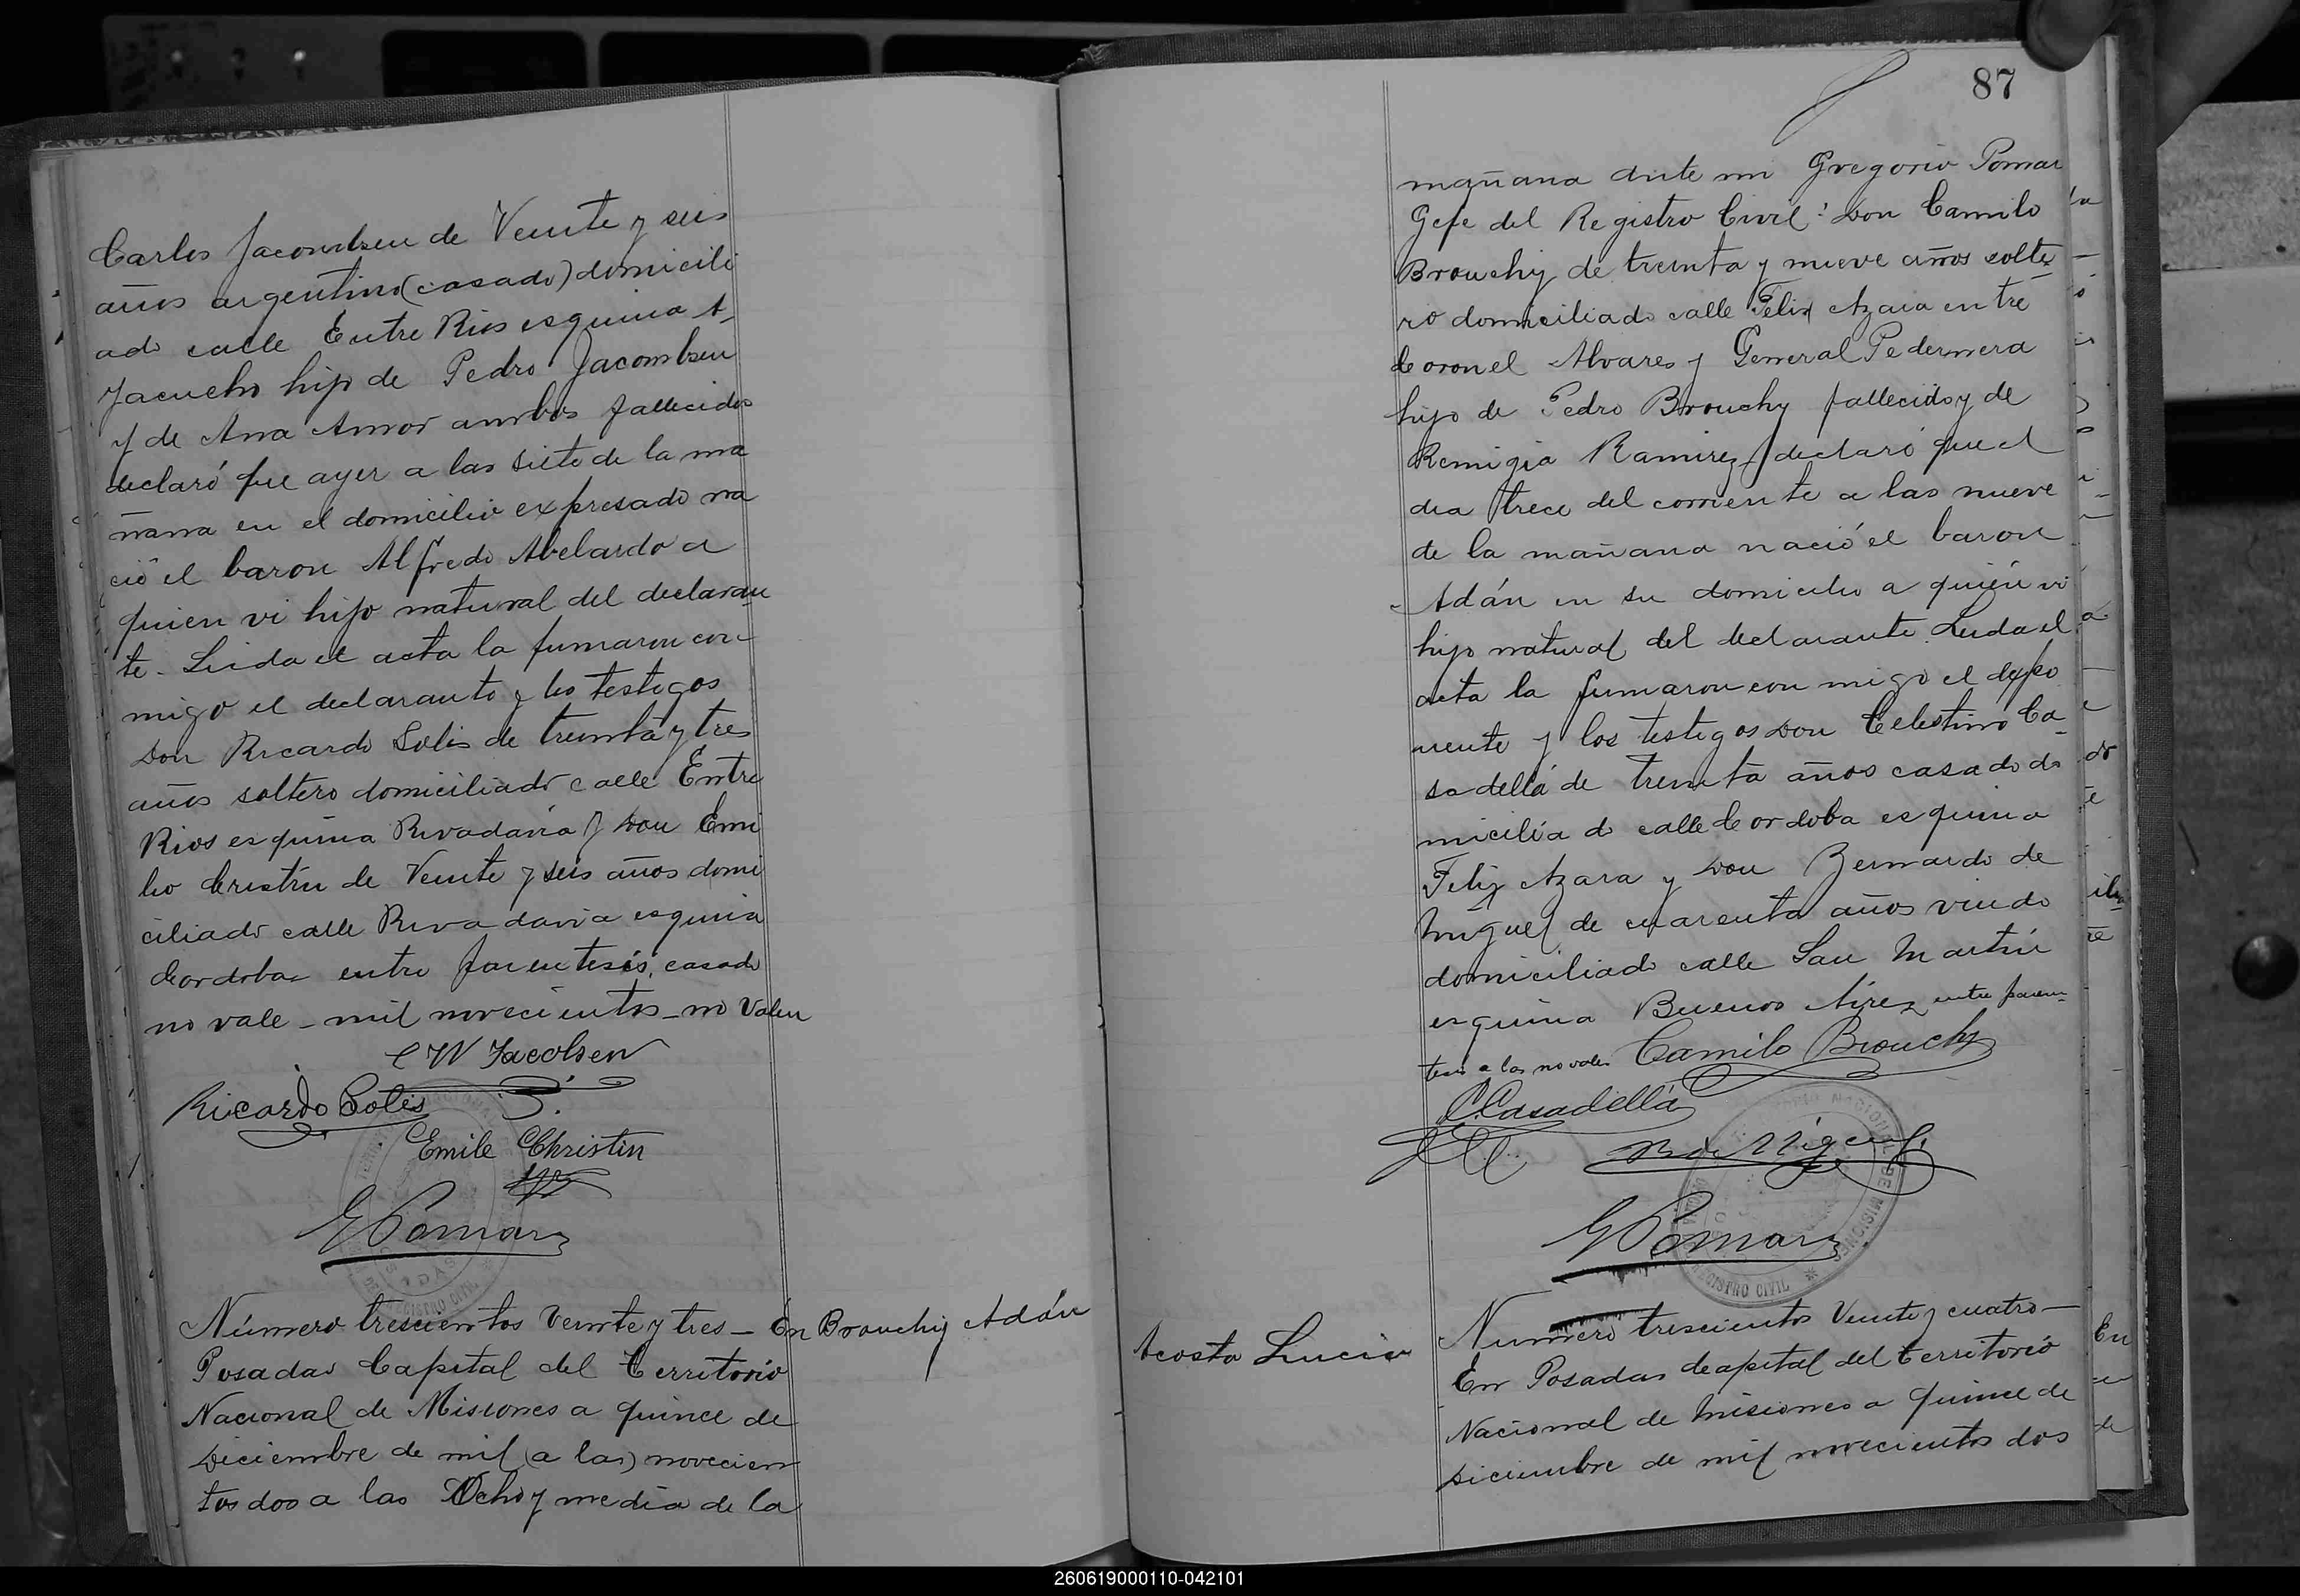 Carlos Jacombsen de Veinte y seis
años argentino (casado) domicili
ado calle Entre Rios esquina A-
yacucho hijo de Pedro Jacombsen
y de Ana Amor ambos fallecidos
declaró que ayer a las siete de la ma
ñana en el domicilio expresado na
ció el baron Alfredo Abelardo a
quien vi hijo natural del declaran
te. Leida el acta la firmaron con-
migo el declarante y los testigos
Don Ricardo Solis de treinta y tres
años soltero domiciliado calle Entre
Rios esquina Rivadavia y Don Emi
lio Cristin de Veinte y seis años domi
ciliado calle Rivadavia esquina
Cordoba- entre parentesis, casado
no vale - mil novecientos - no Valen
C W Jacobsen
Ricardo Solis
Emile Christin
G Pomar
Número trescientos veinte y tres - En
Brouchy Adán
Posadas Capital del Territorio
Nacional de Misiones a quince de
Diciembre de mil (a las) novecien
tos dos a las Ocho y media de la
87
mañana ante mi Gregorio Pomar
Gefe del Registro Civil: Don Camilo
Brouchy de treinta y nueve años solte
ro domiciliado calle Felix Azara entre
Coronel Alvares y General Pedernera
hijo de Pedro Brouchy fallecido y de
Remigia Ramirez declaró que el
dia trece del corriente a las nueve
de la mañana nació el baron
Adán en su domicilio a quién vi
hijo natural del declarante. Leida el
acta la firmaron con migo el expo
nente y los testigos Don Celestino Ca-
sadellá de treinta años casado do
miciliado calle Cordoba esquina
Felix Azara y Don Bernardo de
Miguel de cuarenta años viudo
domiciliado calle San Martín
esquina Buenos Aires entre paren-
tesis a las no vale. Camilo Brouchy
C. Casadellá
B de Miguel
G Pomar
REGISTRO CIVIL
Acosta Lucia
Numero trescientos Veinte y cuatro-
En Posadas Capital del territorio
Nacional de Misiones a quince de
Diciembre de mil novecientos dos
260619000110-042101